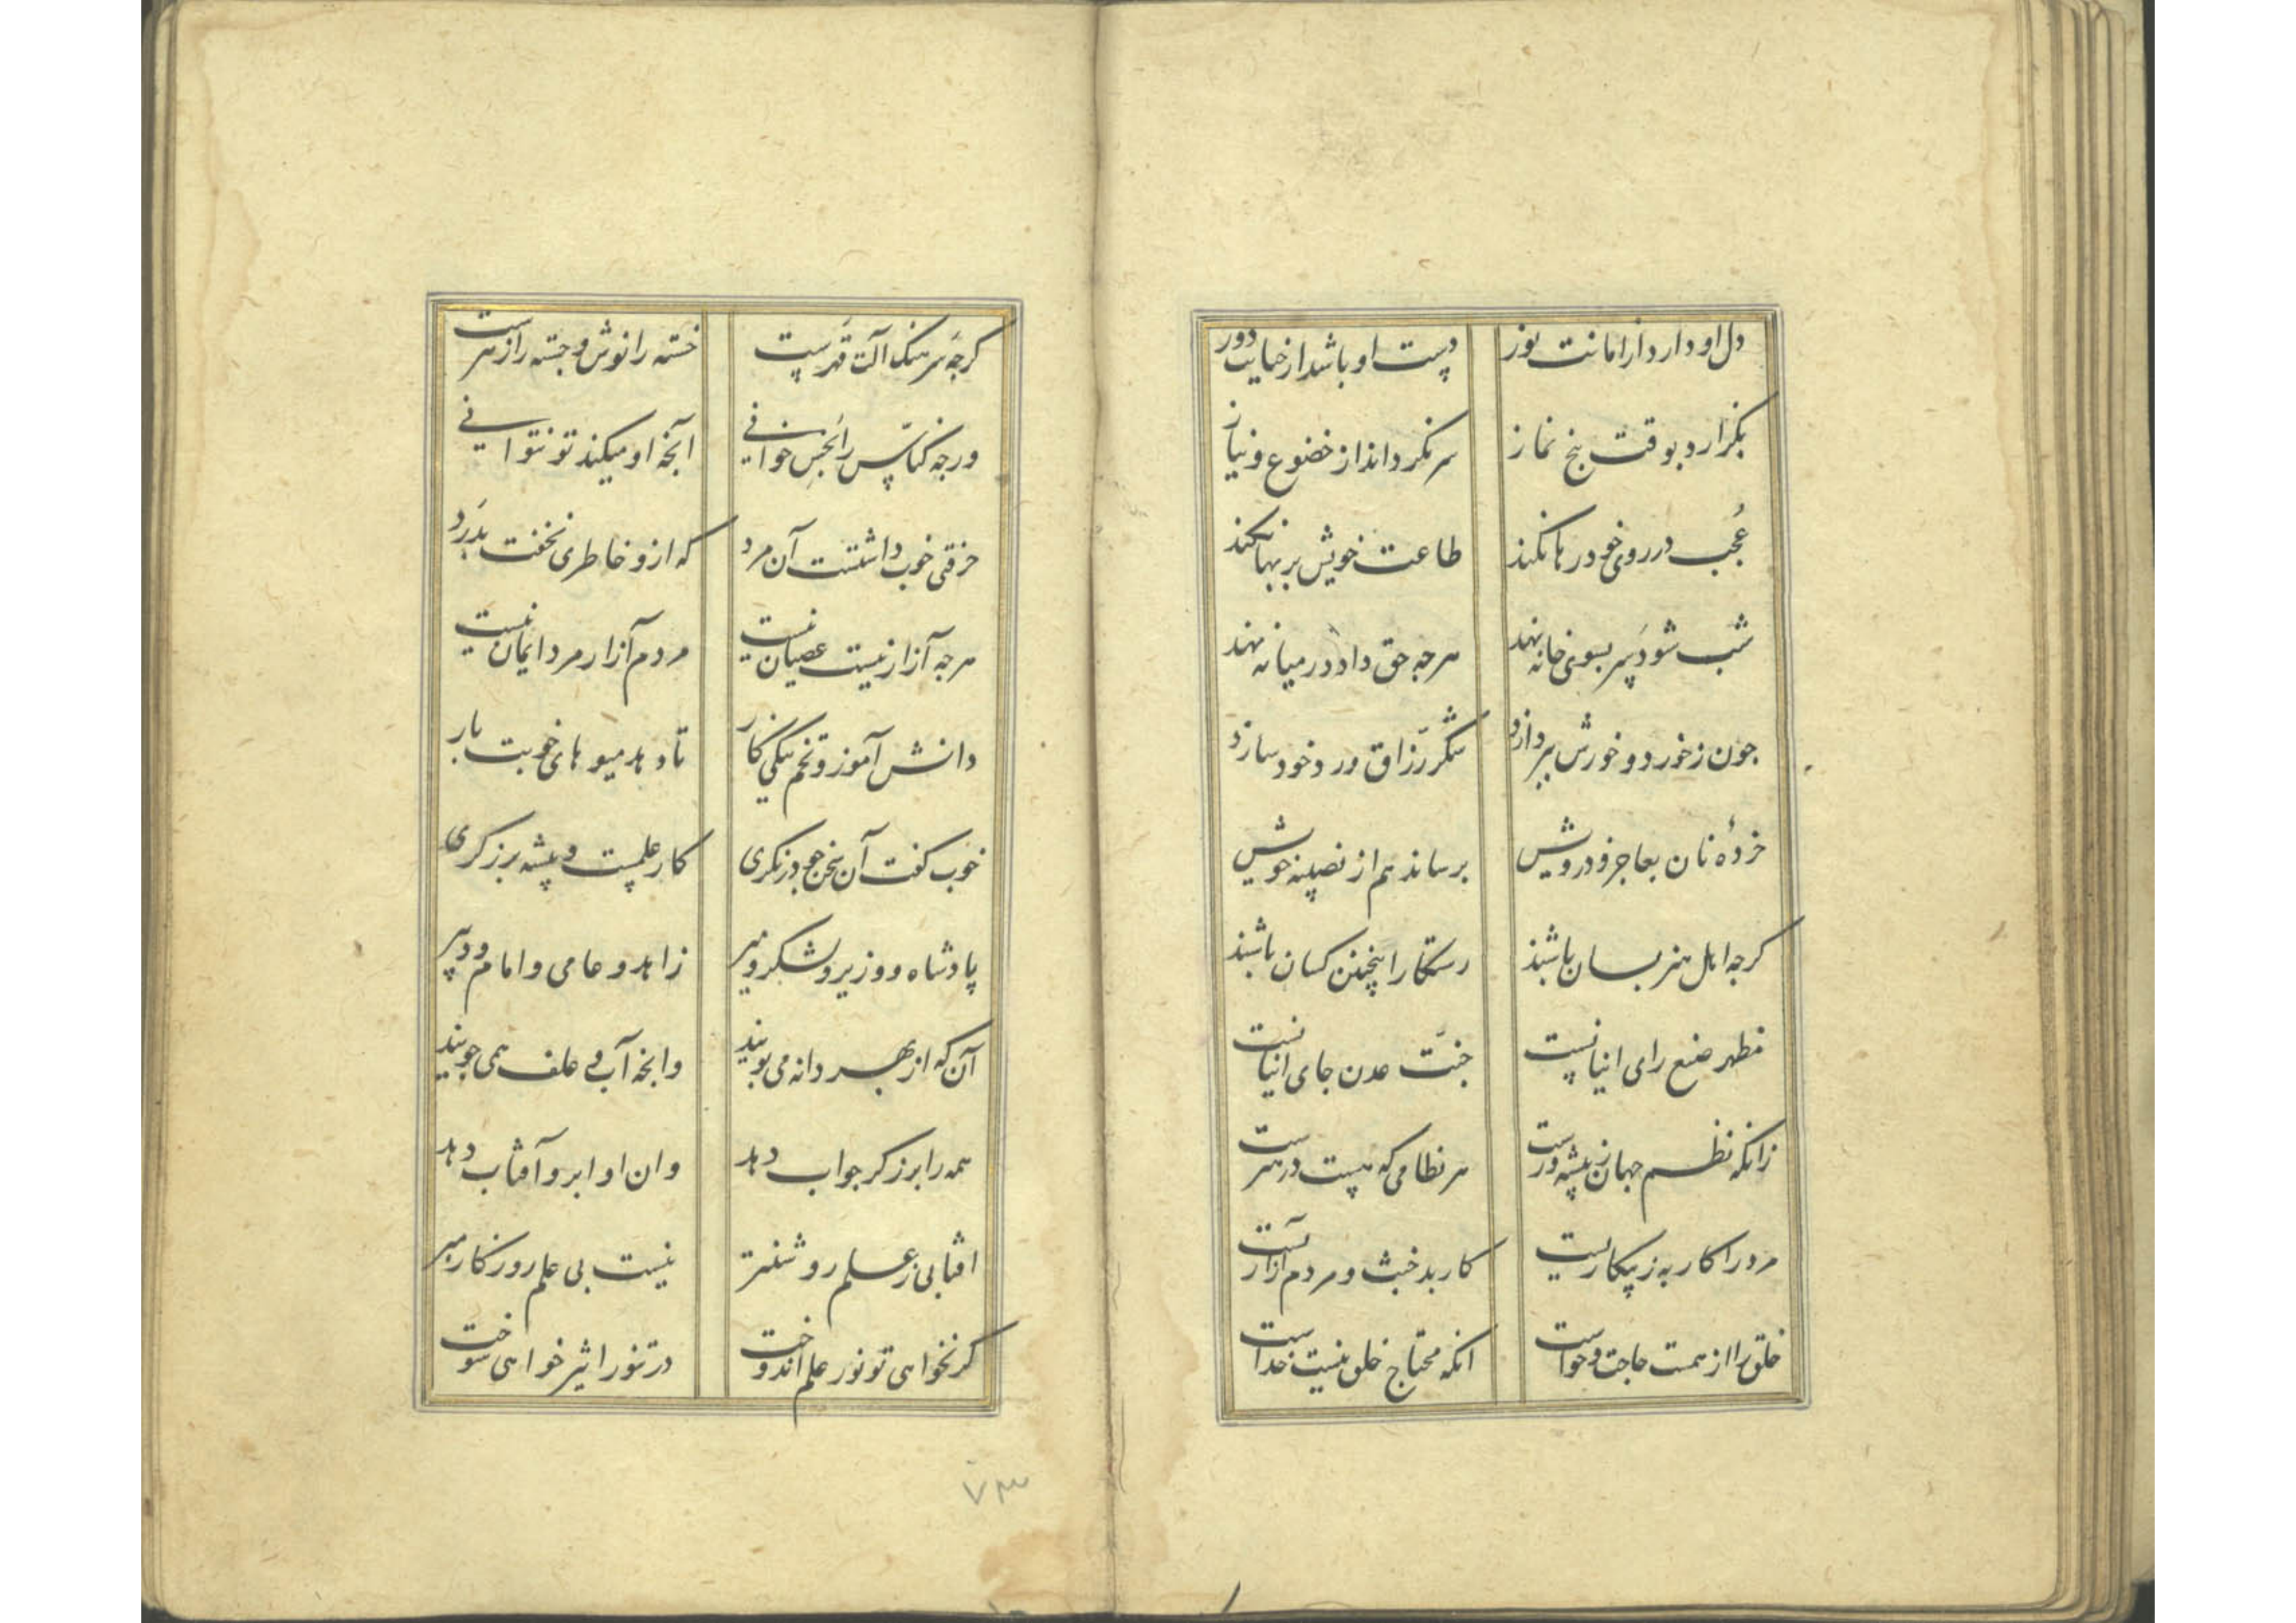 دل او دارد از امانت نور دست او باشد از خیانت دور
بگزارد بوقت پنج نماز سر نگرداند از خضوع و نیاز
عُجب در روی خود رها نکند طاعت خویش بر بها نکند
شب شود سر بسوی خانه نهد هرچه حق داد در میانه نهد
چون ز خورد و خورش بپردازد شکر رزّاق ورد خود سازد
خردهٔ نان بعاجز و درویش برساند هم از نصیبهٔ خویش
کرچه اهل هنر بسان باشند رستکار اینچنین کسان باشند
مظهر صنع رای اینانست جنّت عدن جای اینانست
زانکه نظم جهان ز پیشه ورست هر نظامی که هست در هنرست
مرد را کار به ز بیکاریست کار بد خبث و مردم آزاریست
خلق را از همست حاجت و خواست انکه محتاج خلق نیست خداست
کرچه سرهنک آلت قهرست خسته را نوش و جسته را زهرست
ورچه کنّاس را نجس خوانی آنچه او میکند تو نتوانی
حرفتی خوب داشتست آن مرد که ازو خاطری نخفت بدَرد
هرچه آزار نیست عصیان نیست مردم آزار مرد ایمان نیست
دانش آموز و تخم نیکی کار تا دهد میوهای خوبت بار
خوب کفت آن سخن چو در نکری کار علمست و پیشه برزکری
پادشاه و وزیر و لشکر و میر زاهد و عامی و امام و دبیر
آن که از بهر دانه می پویند وانچه آب و علف همی جویند
همه را برزکر جواب دهد وان او ابر و آفتاب دهد
افتابی ز علم روشنتر نیست بی علم روزکار مبر
کر نخواهی تو نور علم اندوخت در تنور اثیر خواهی سوخت
۷۳